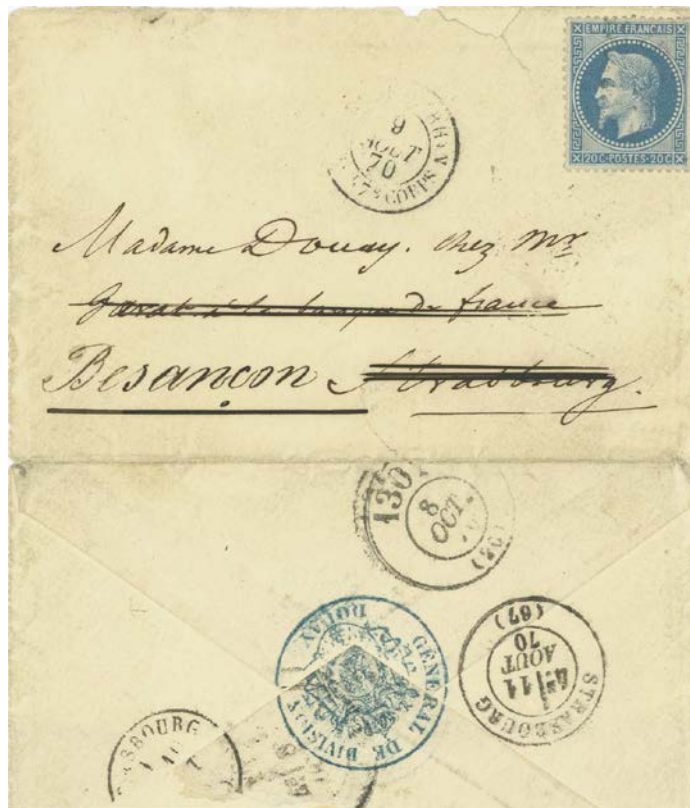 EMPIRE FRANÇAIS
20C·POSTES·20C
RHIN
9
AOUT
70
7E CORPS
Madame Douay. chez Mr
à la banque de france
Besançon Strasbourg.
130
8
OCT.
GÉNÉRAL DE DIVISION
DOUAY
STRASBOURG
4E 11
AOUT
70
(67)
ASBOURG